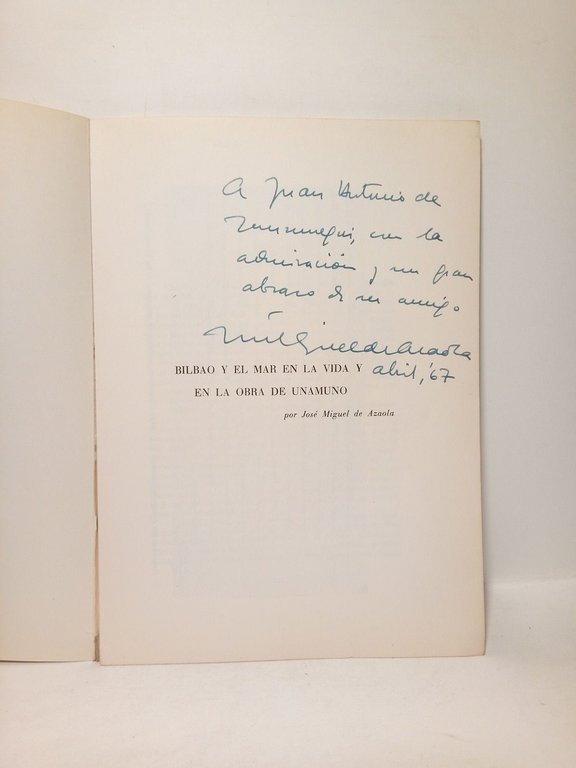 A Juan Antonio de
Zunzunegui, con la
admiración y un gran
abrazo de su amigo
José Miguel de Azaola
abril, '67
BILBAO Y EL MAR EN LA VIDA Y
EN LA OBRA DE UNAMUNO
por José Miguel de Azaola